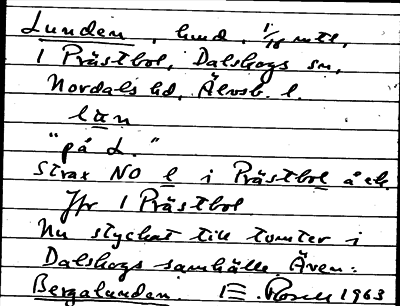 Lunden, hmd. 1/18 mtl,
1 Prästbol, Dalskogs sn,
Nordals hd, Älvsb. l.
"på L."
Strax NO l i Prästbol å ek.
Jfr 1 Prästbol
Nu styckat till tomter i
Dalskogs samhälle. Även:
Bergalunden. 1963